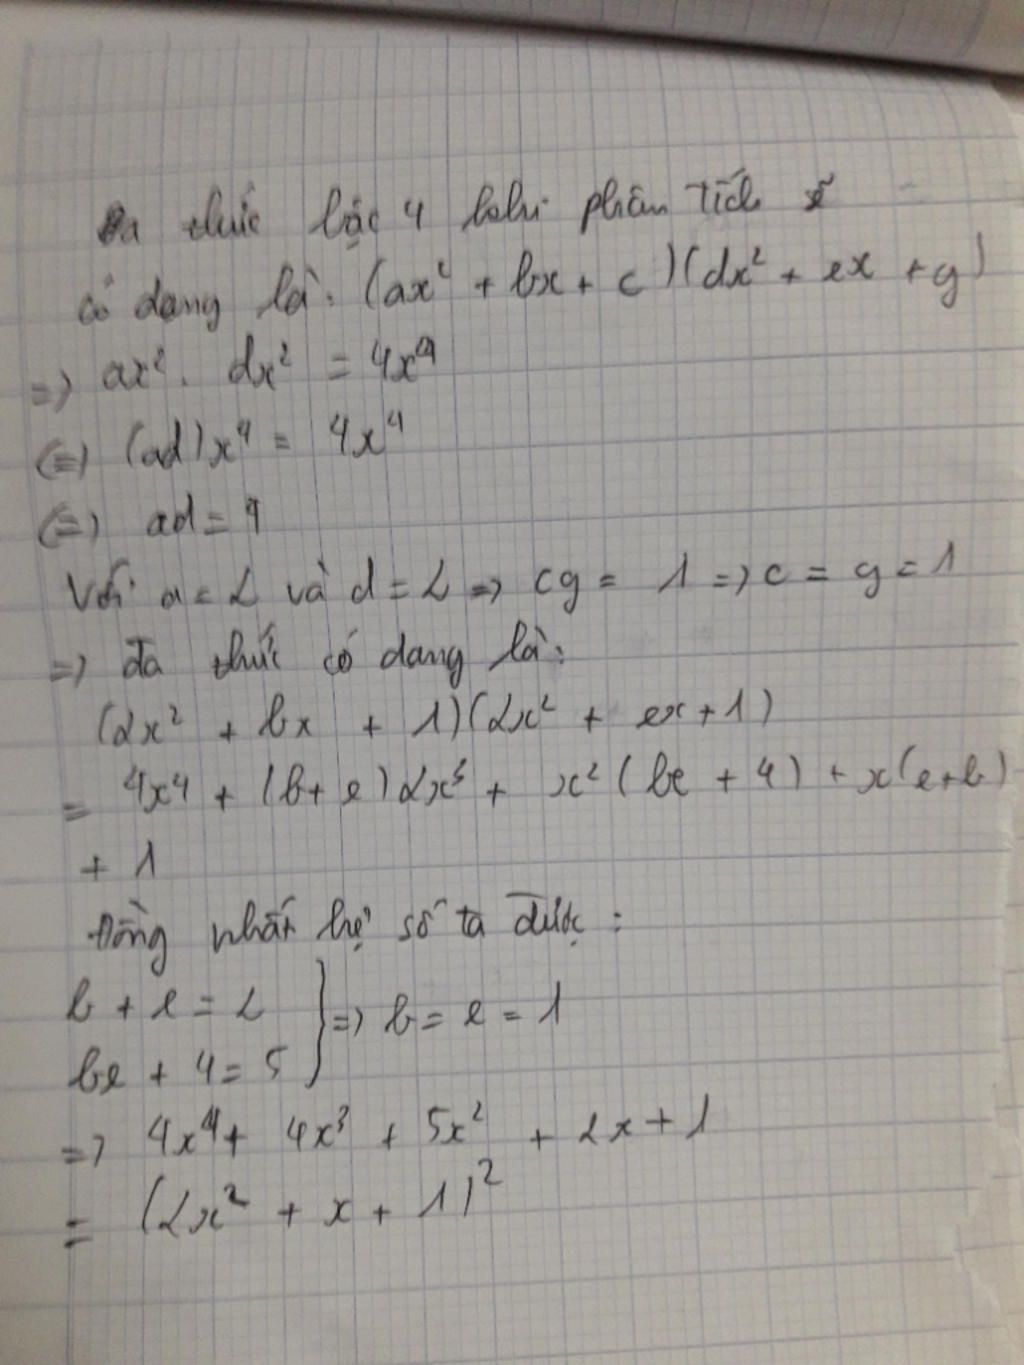 Đa thức bậc 4 khi phân tích sẽ
có dạng là: (ax² + bx + c)(dx² + ex + g)
=> ax². dx² = 4x⁴
(=) (ad)x⁴ = 4x⁴
(=) ad = 4
Với a = 2 và d = 2 => cg = 1 => c = g = 1
=> đa thức có dạng là:
(2x² + bx + 1)(2x² + ex + 1)
= 4x⁴ + (b+e)2x³ + x²(be + 4) + x(e+b)
+ 1
Đồng nhất hệ số ta được:
b + e = 2
be + 4 = 5 } => b = e = 1
=> 4x⁴ + 4x³ + 5x² + 2x + 1
= (2x² + x + 1)²